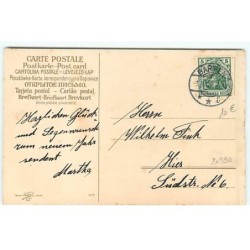 CARTE POSTALE
Postkarte - Post card
CARTOLINA POSTALE - LEVELEZŐ-LAP
ОТКРЫТОЕ ПИСЬМО.
Tarjeta postal - Cartão postal
Brefkort - Briefkaart - Brevkort
Herzlichen Glück
und Segenwunsch
zum neuem Jahr
sendent
Martha
Herrn
Wilhelm Fink
Hier
Südstr. No 6.
10 €